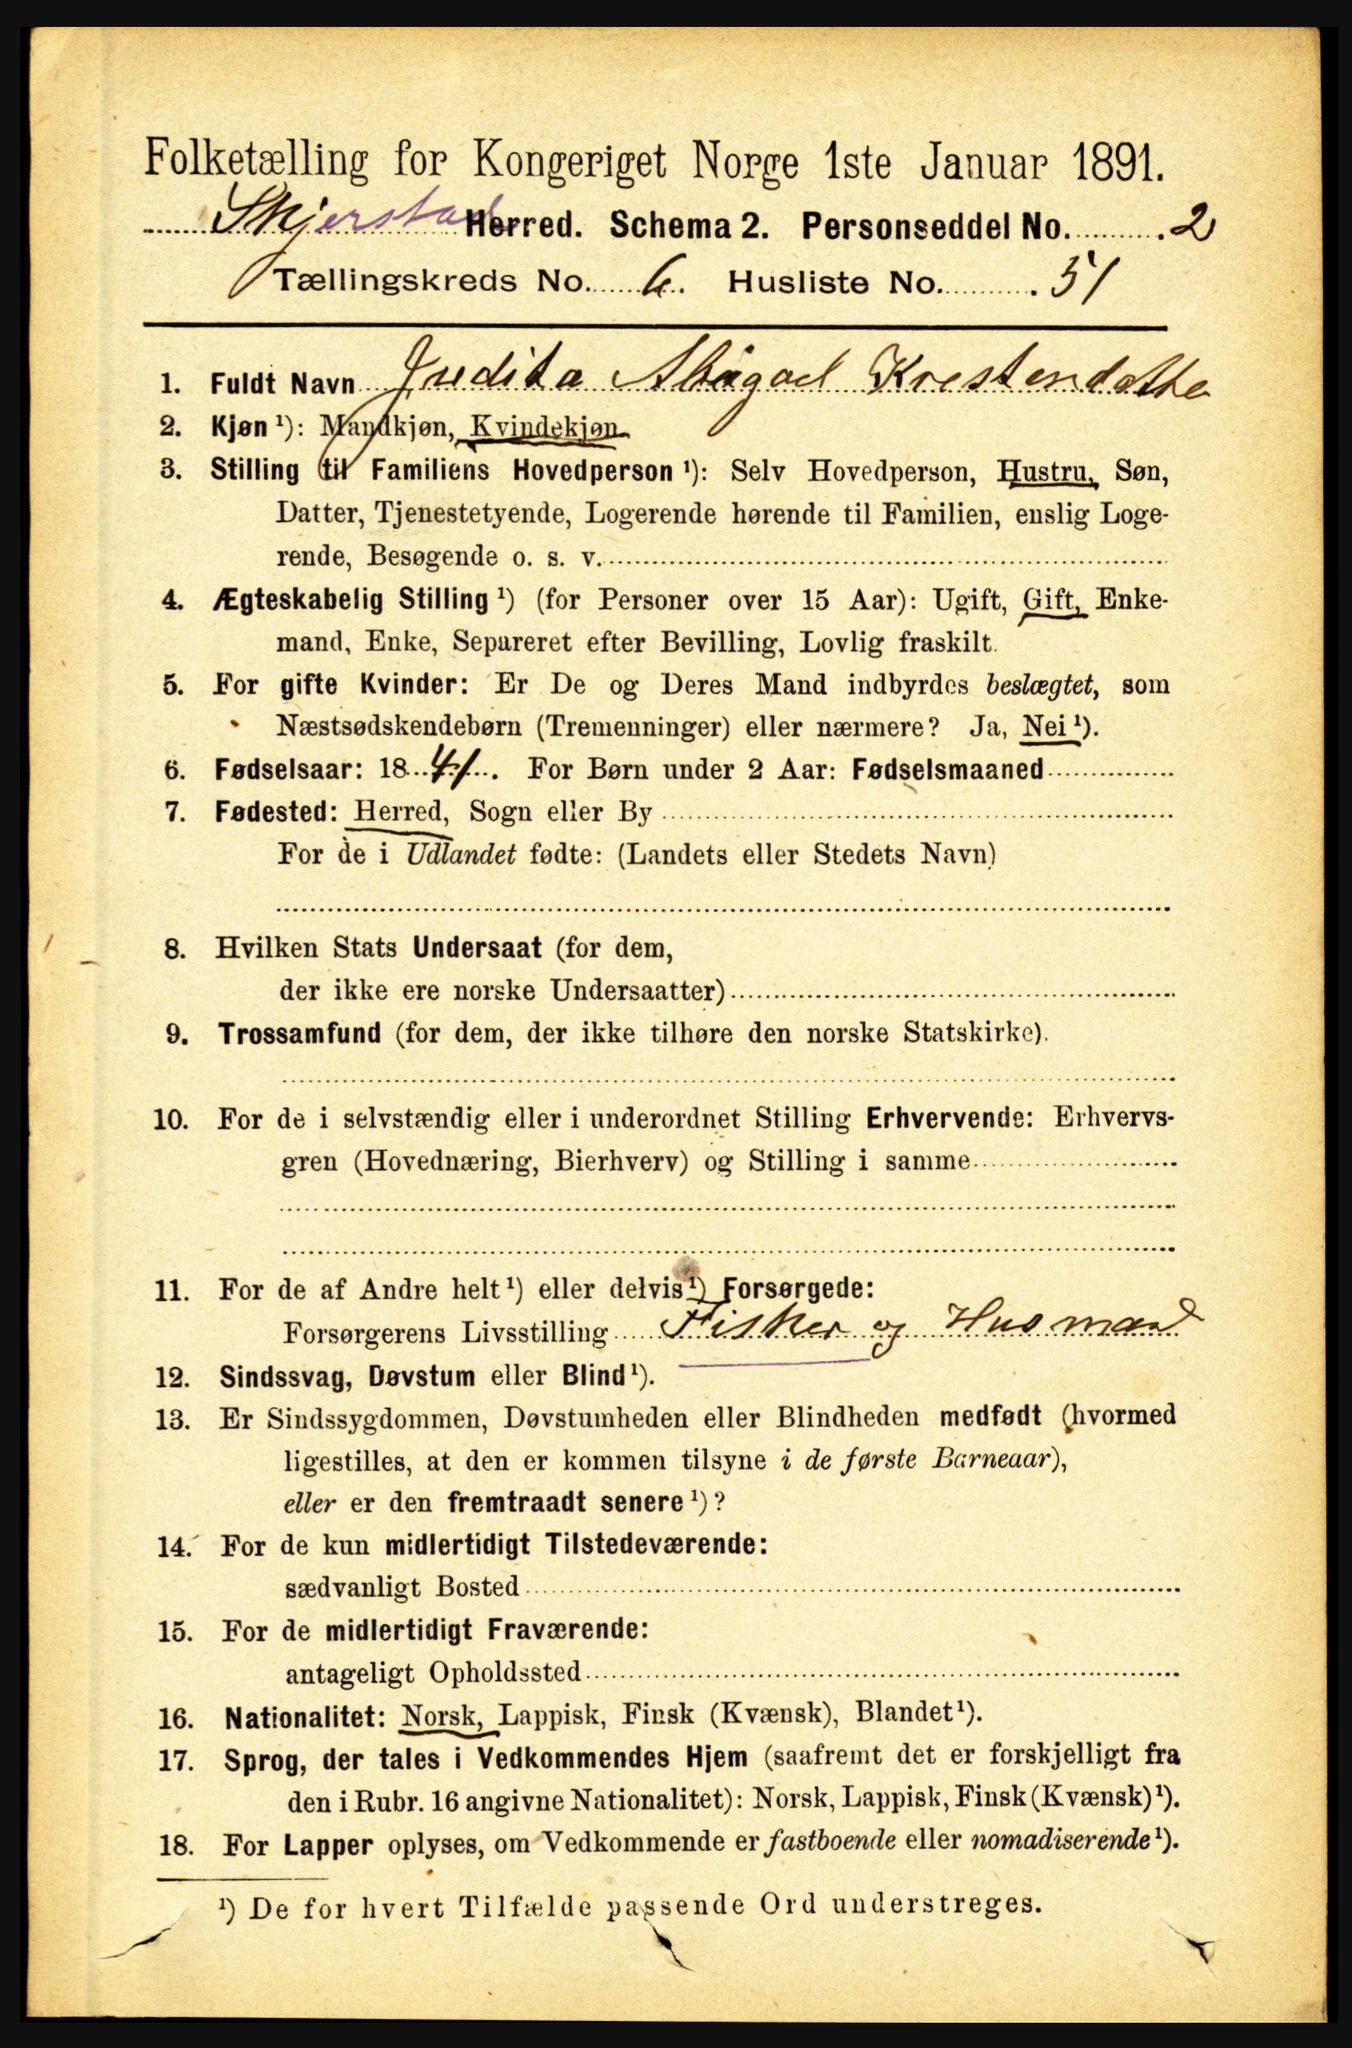 Folketælling for Kongeriget Norge 1ste Januar 1891.
Skjerstad Herred. Schema 2. Personseddel No. 2
Tællingskreds No. 6. Husliste No. 51
1. Fuldt Navn Judita Abigael Krestendatter
2. Kjøn ¹): Mandkjøn, Kvindekjøn
3. Stilling til Familiens Hovedperson ¹): Selv Hovedperson, Hustru, Søn,
Datter, Tjenestetyende, Logerende hørende til Familien, enslig Loge-
rende, Besøgende o. s. v.
4. Ægteskabelig Stilling ¹) (for Personer over 15 Aar): Ugift, Gift, Enke-
mand, Enke, Separeret efter Bevilling, Lovlig fraskilt.
5. For gifte Kvinder: Er De og Deres Mand indbyrdes beslægtet, som
Næstsødskendebørn (Tremenninger) eller nærmere? Ja, Nei ¹).
6. Fødselsaar: 1841. For Børn under 2 Aar: Fødselsmaaned
7. Fødested: Herred, Sogn eller By
For de i Udlandet fødte: (Landets eller Stedets Navn)
8. Hvilken Stats Undersaat (for dem,
der ikke ere norske Undersaatter)
9. Trossamfund (for dem, der ikke tilhøre den norske Statskirke).
10. For de i selvstændig eller i underordnet Stilling Erhvervende: Erhvervs-
gren (Hovednæring, Bierhverv) og Stilling i samme
11. For de af Andre helt ¹) eller delvis ¹) Forsørgede:
Forsørgerens Livsstilling Fisker og Husmand
12. Sindssvag, Døvstum eller Blind ¹).
13. Er Sindssygdommen, Døvstumheden eller Blindheden medfødt (hvormed
ligestilles, at den er kommen tilsyne i de første Barneaar),
eller er den fremtraadt senere ¹)?
14. For de kun midlertidigt Tilstedeværende:
sædvanligt Bosted
15. For de midlertidigt Fraværende:
antageligt Opholdssted
16. Nationalitet: Norsk, Lappisk, Finsk (Kvænsk), Blandet ¹).
17. Sprog, der tales i Vedkommendes Hjem (saafremt det er forskjelligt fra
den i Rubr. 16 angivne Nationalitet): Norsk, Lappisk, Finsk (Kvænsk) ¹).
18. For Lapper oplyses, om Vedkommende er fastboende eller nomadiserende ¹).
¹) De for hvert Tilfælde passende Ord understreges.